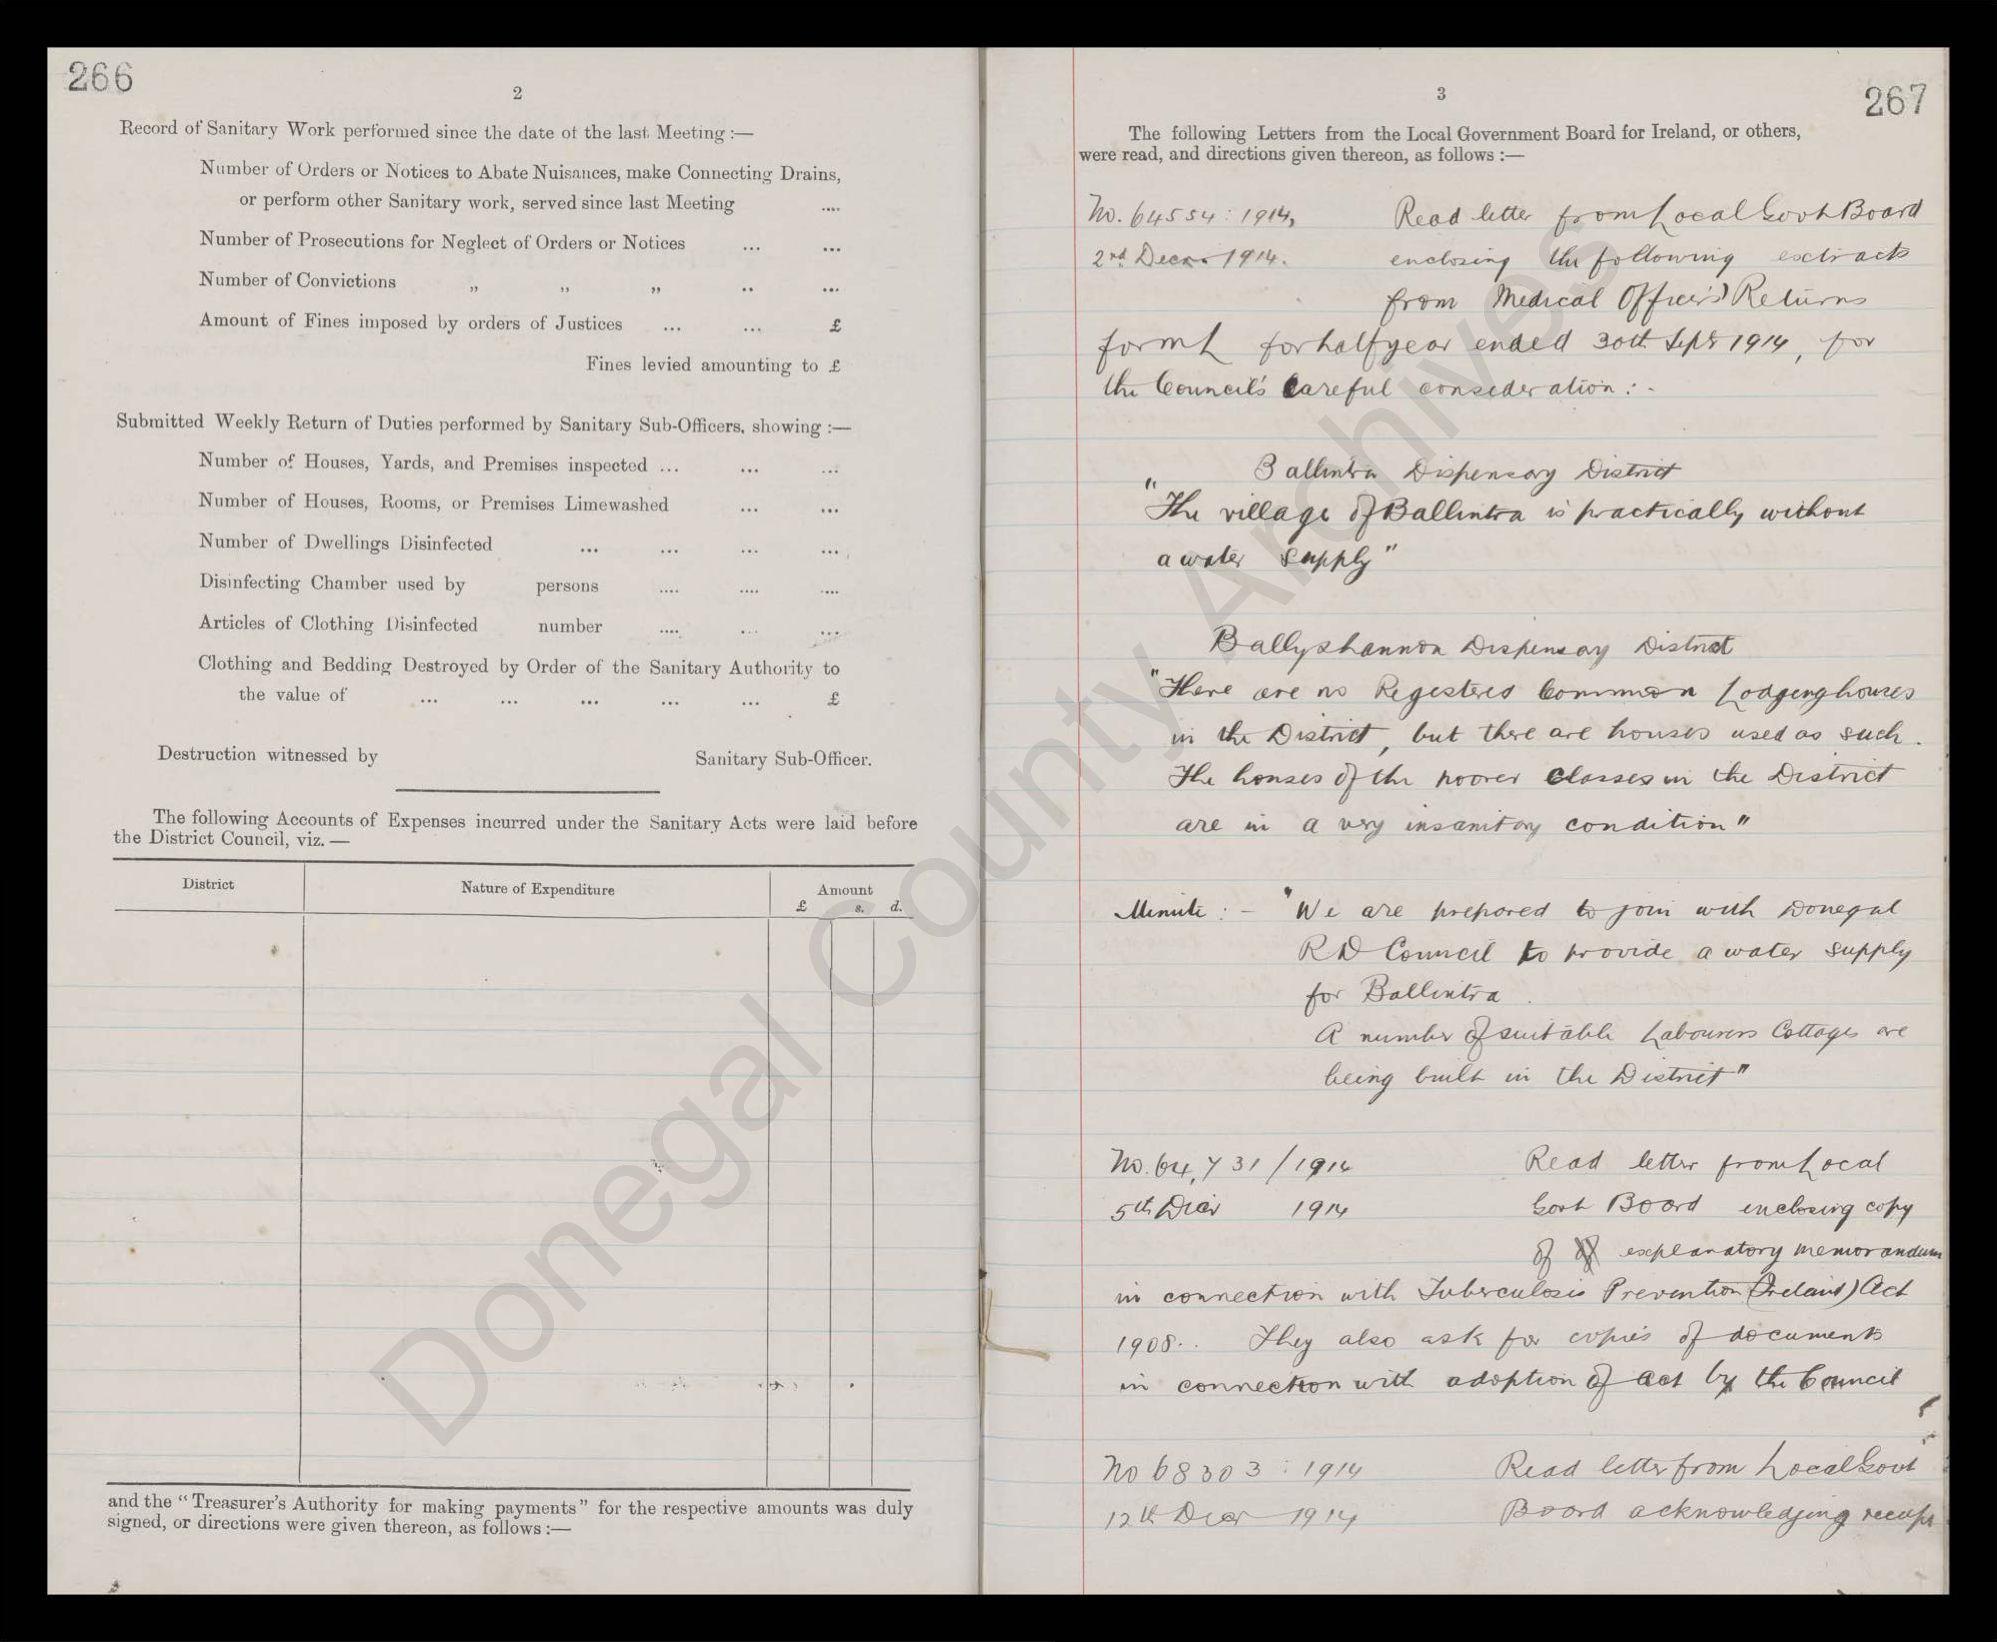 266
2
Record of Sanitary Work performed since the date of the last Meeting :—
Number of Orders or Notices to Abate Nuisances, make Connecting Drains,
or perform other Sanitary work, served since last Meeting ....
Number of Prosecutions for Neglect of Orders or Notices ... ...
Number of Convictions „ „ „ .. ...
Amount of Fines imposed by orders of Justices ... ... £
Fines levied amounting to £
Submitted Weekly Return of Duties performed by Sanitary Sub-Officers, showing :—
Number of Houses, Yards, and Premises inspected ... ... ...
Number of Houses, Rooms, or Premises Limewashed ... ...
Number of Dwellings Disinfected ... ... ... ...
Disinfecting Chamber used by persons .... .... ....
Articles of Clothing Disinfected number .... ... ...
Clothing and Bedding Destroyed by Order of the Sanitary Authority to
the value of ... ... ... ... ... £
Destruction witnessed by Sanitary Sub-Officer.
The following Accounts of Expenses incurred under the Sanitary Acts were laid before
the District Council, viz. —
District Nature of Expenditure Amount
£ s. d.
and the “Treasurer's Authority for making payments” for the respective amounts was duly
signed, or directions were given thereon, as follows :—
267
3
The following Letters from the Local Government Board for Ireland, or others,
were read, and directions given thereon, as follows :—
No. 64554 : 1914, Read letter from Local Govt Board
2nd Decr. 1914. enclosing the following extracts
from Medical Officers' Returns
form L for half year ended 30th Septr 1914, for
the Council's Careful consideration : -
Ballintra Dispensary District
"The village of Ballintra is practically without
a water supply"
Ballyshannon Dispensary District
"There are no Registered Common Lodginghouses
in the District, but there are houses used as such.
The houses of the poorer classes in the District
are in a very insanitary condition"
Minute : - "We are prepared to join with Donegal
R D Council to provide a water supply
for Ballintra.
A number of suitable Labourers Cottages are
being built in the District"
No. 64,731/1914 Read letter from Local
5th Decr 1914 Govt Board enclosing copy
of explanatory memorandum
in connection with Tuberculosis Prevention (Ireland) Act
1908. They also ask for copies of documents
in connection with adoption of Act by the Council
No 68303 : 1914 Read letter from Local Govt
12th Decr 1914 Board acknowledging receipt
Donegal County Archives